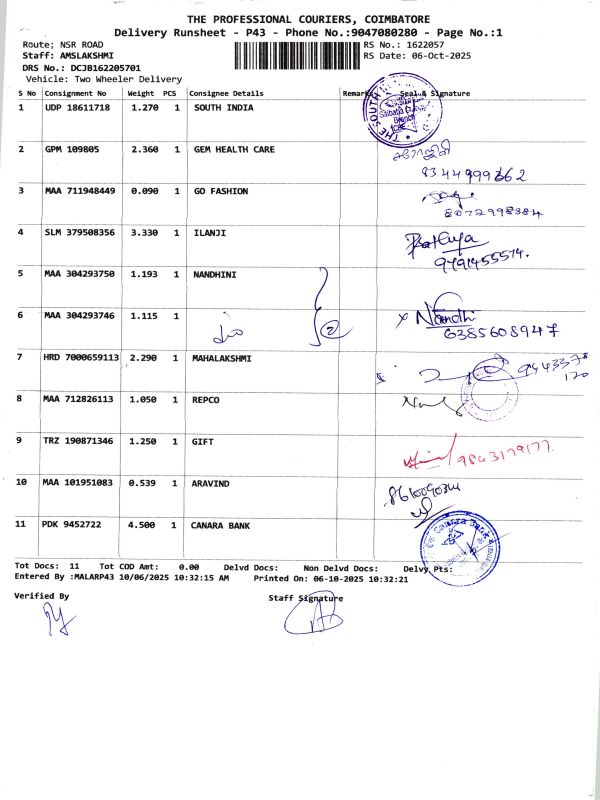 THE PROFESSIONAL COURIERS, COIMBATORE
Delivery Runsheet - P43 - Phone No.:9047080280 - Page No.:1
Route; NSR ROAD
RS No.: 1622057
Staff: AMSLAKSHMI
RS Date: 06-Oct-2025
DRS No.: DCJB162205701
Vehicle: Two Wheeler Delivery
S No Consignment No Weight PCS Consignee Details Remark Seal & Signature
1 UDP 18611718 1.270 1 SOUTH INDIA
THE SOUTH
Branch
2 GPM 109805 2.360 1 GEM HEALTH CARE
9344999662
3 MAA 711948449 0.090 1 GO FASHION
8072998384
4 SLM 379508356 3.330 1 ILANJI
9791455574.
5 MAA 304293750 1.193 1 NANDHINI
6 MAA 304293746 1.115 1
2
x Nandhi
6385608947
7 HRD 7000659113 2.290 1 MAHALAKSHMI
9443378
170
8 MAA 712826113 1.050 1 REPCO
9 TRZ 190871346 1.250 1 GIFT
9843179177
10 MAA 101951083 0.539 1 ARAVIND
11 PDK 9452722 4.500 1 CANARA BANK
Canara Bank
Tot Docs: 11 Tot COD Amt: 0.00 Delvd Docs: Non Delvd Docs: Delvy Pts:
Entered By :MALARP43 10/06/2025 10:32:15 AM Printed On: 06-10-2025 10:32:21
Verified By
Staff Signature